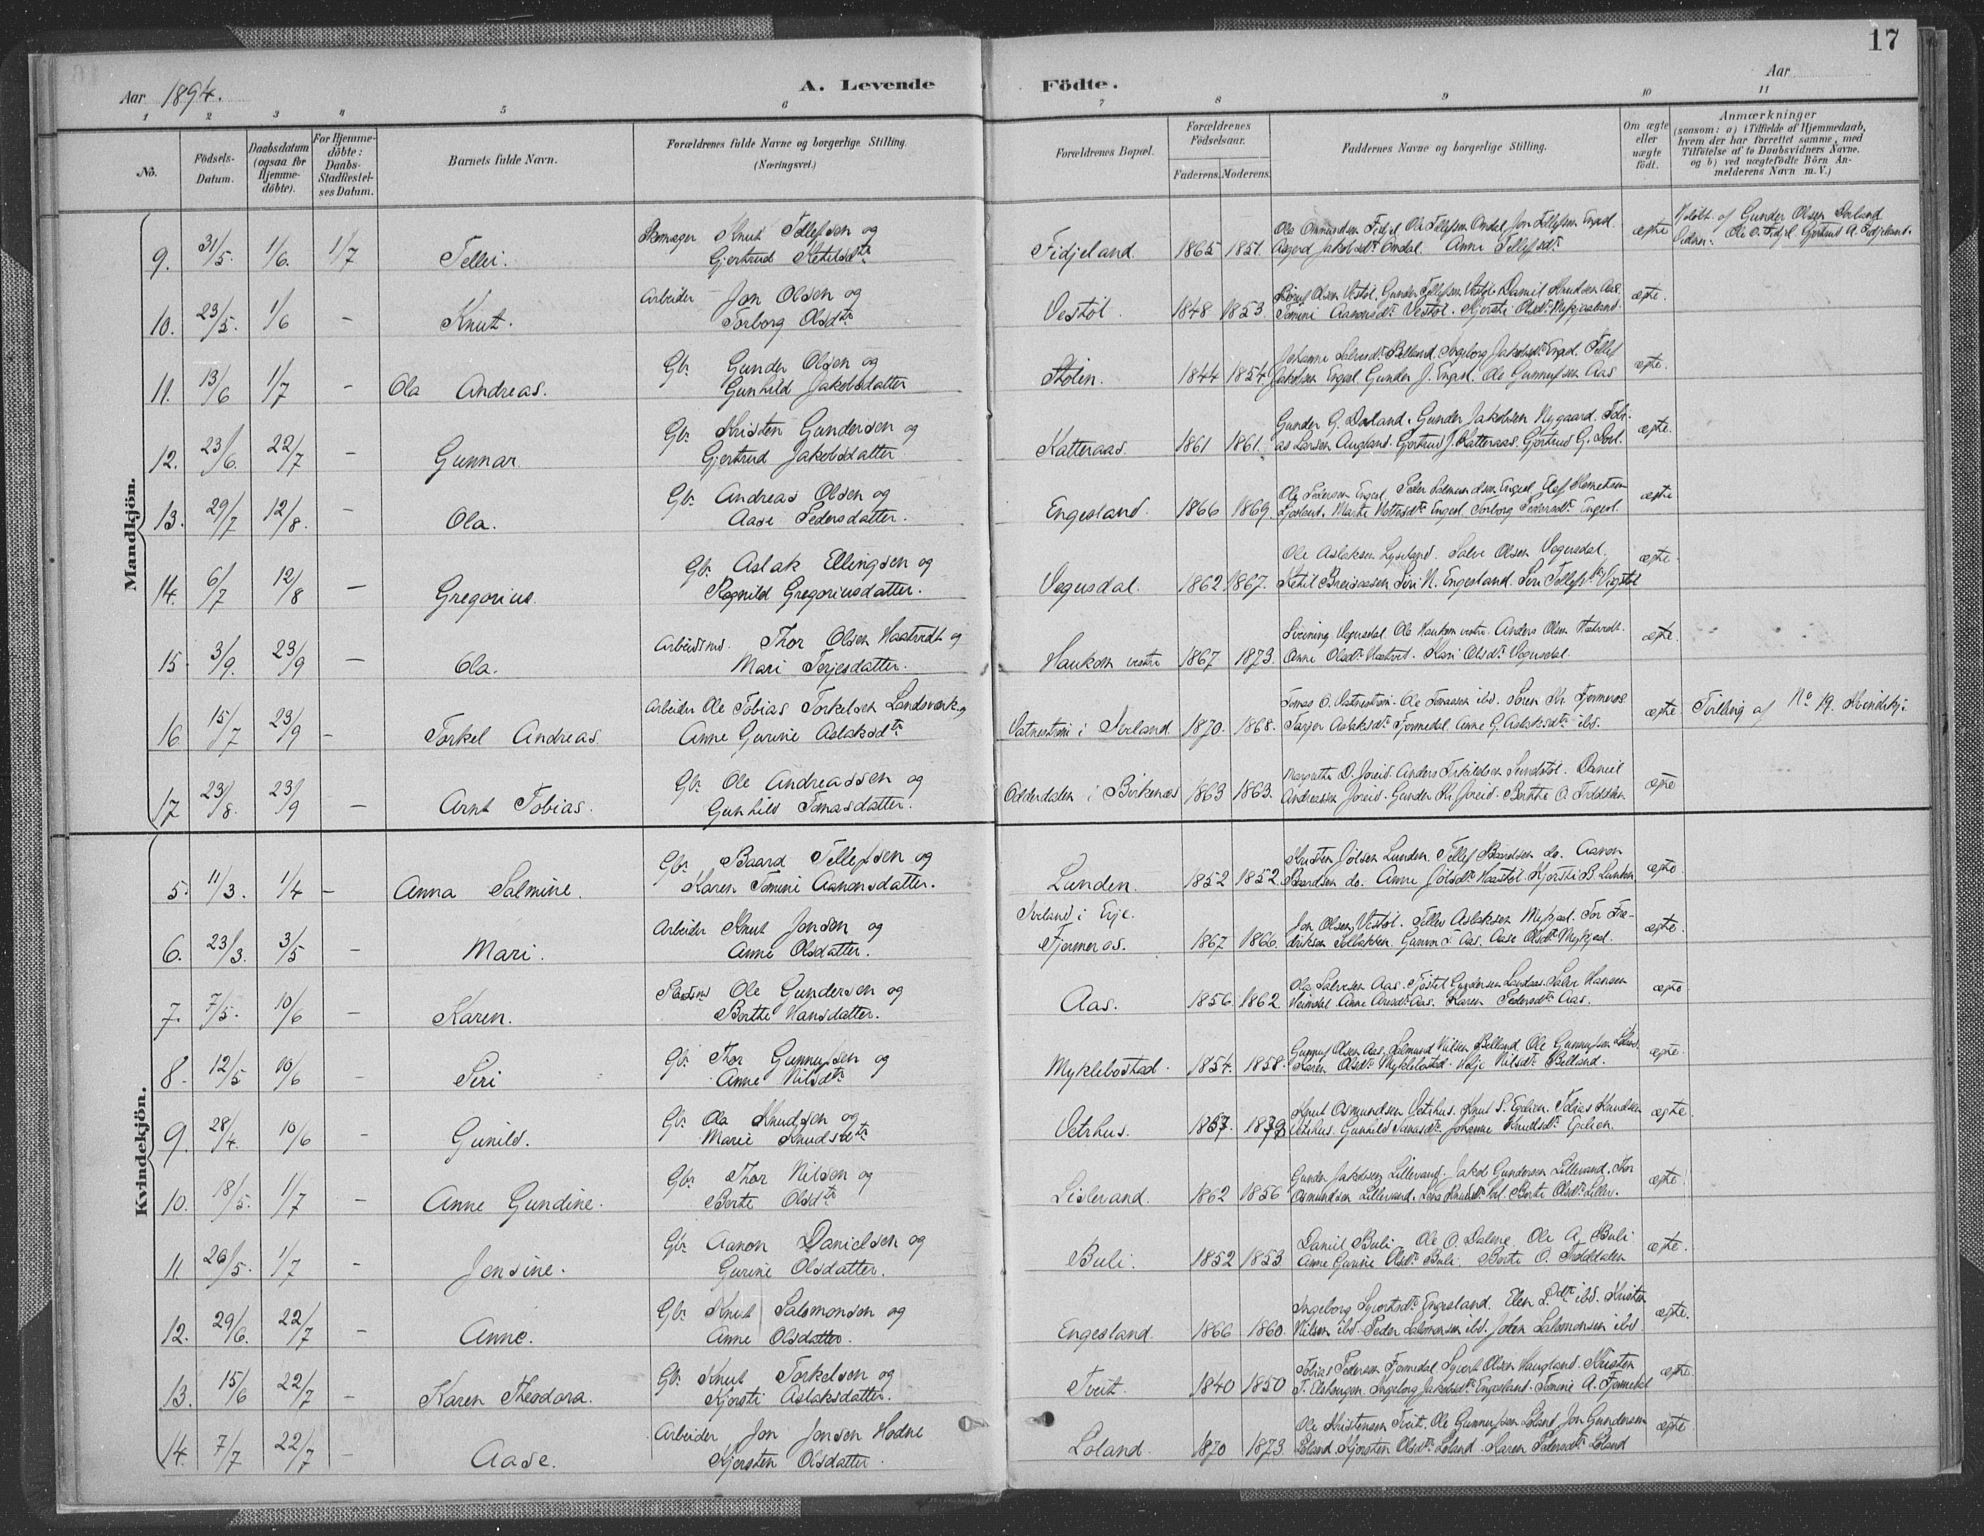 17
Aar 1894.
A. Levende Födte.
Aar
1 2 3 4 5 6 7 8 9 10 11
No.
Födsels-Datum.
Daabsdatum (ogsaa for Hjemme-döbte).
For Hjemme-döbte: Daabs-Stadfæstel-ses Datum.
Barnets fulde Navn.
Forældrenes fulde Navne og borgerlige Stilling. (Næringsvei.)
Forældrenes Bopæl.
Forældrenes Födselsaar.
Faderens. Moderens.
Faddernes Navne og borgerlige Stilling.
Om ægte eller uægte födt.
Anmærkninger
(saasom: a) i Tilfælde af Hjemmedaab, hvem der har forrettet samme, med Tilföielse af to Daabsvidners Navne, og b) ved uægtefödte Börn An-melderens Navn m. V.)
Mandkjön.
9. 31/5 1/6. 1/7 Tellef. Knut Tellefsen og
Gjertrud Ketilsdtr
Fidjeland. 1865 1851. Ole Omundsen Fidjel Ole Tellefsen Omdal Jon Tellefsen Engesl.
Aagod Jakobsdtr Omdal. Anne Tellefsdtr ægte Hjdöbt af Gunder Olsen Dorland
Vidner: Ole O. Fidjel Gjertrud A. Fidjeland.
10. 23/5. 1/6 – Knut. Arbeider Jon Olsen og
Torborg Olsdtr
Vestöl. 1848 1853. Olsen Vestöl. Gunder Tellefsen Vestöl Daniel Knudsen Aas.
Tomini Aanonsdtr Vestöl. Kjersti Olsdtr ægte.
11. 13/6 1/7 – Ola Andreas. Gbr. Gunder Olsen og
Gunhild Jakobsdatter
Stölen. 1844 1854. Johanne Salvesdtr Belland. Ingeborg Jakobsdtr Engesl. Tellef
Jakobsen Engesl. Gunder J. Engesl. Ole Gunnufsen Aas ægte.
12. 23/6. 22/7 – Gunnar. Gbr. Kristen Gundersen og
Gjertrud Jakobsdatter
Katteraas. 1861 1861. Gunder G. Dorland. Gunder Jakobsen Nygaard. Tobi-
as Larsen Augland. Gjertrud J. Katteraas. Gjertrud G. Dorl. ægte.
13. 29/7 12/8. – Ola. Gbr. Andreas Olsen og
Aase Pedersdatter.
Engesland. 1866 1869. Ole Pedersen Engesl. Peder Salmundsen Engesl
Marte Engesl Torborg Pedersdtr Engesl. ægte
14. 6/7 12/8 – Gregorius. Gbr. Aslak Ellingsen og
Ragnild Gregoriusdatter.
Vegusdal. 1862 1867. Ole Aslaksen Lyseland. Salve Olsen Vegusdal.
Ketil Siri N. Engesland. Siri Tellefsdtr ægte.
15. 3/9. 23/9 – Ola. Arbeidsmd. Thor Olsen Haatvedt og
Mari Terjesdatter.
Haukom vestre 1867 1873. Vegusdal. Ole Haukom vestre. Anders Olsen Haatvedt.
Anne Olsdtr Haatved. Kari Olsdtr Vegusdal. ægte.
16. 15/7 23/9 – Torkel Andreas. Arbeider Ole Tobias Torkelsen Landsverk og
Anne Gurine Aslaksdtr
Vatnestrøm i Iveland. 1870. 1868. Tomas O. Vatnestrøm. Ole Tomassen ibd. Søren Kr. Fjermeros
Aslaksdtr Fjermedal Anne G. Aslaksdtr ibd. ægte Tvilling af No 19. Kvindekj.
17 23/8. 23/9 – Arnt Tobias. Gbr. Ole Andreassen og
Gunhild Tomasdatter.
Odderdalen i Birkenæs 1863 1863. Margrethe D. Joreid. Anders Terkildsen Sundstöl. Daniel
Andreassen Joreid. Gunder Kr. Joreid. Berthe O. ægte
Kvindekjön.
5. 11/3. 1/4 – Anna Salmine. Gbr. Baard Tellefsen og
Karen Tomine Aanonsdatter.
Lunden. 1852 1852. Kristen Jölsen Lunden. Tellef Baardsen do. Aanon
Baardsen do. Anne Jölsdtr Haastöl Kjersti B Lunden ægte.
6. 23/3. 3/5 – Mari. Arbeider Knut Jonsen og
Anne Olsdatter.
Iveland i Evje.
Fjermeros. 1867 1866. Jon Olsen Vestöl. Tellev Aslaksen Mykjed. Tor Fre-
driksen Sollikken. Gunvor T. Aas. Aase Olsdtr Mykjed. ægte.
7. 7/5. 10/6 – Karen. Pladsmd Ole Gundersen og
Berthe Hansdatter.
Aas. 1856. 1862. Ola Salvesen Aas. Tjöstel Gundersen Landaas. Salve Hansen
Heimdal Anne Aas. Karen Pedersdtr Aas. ægte
8. 12/5 10/6 – Siri Gbr. Thor Gunnufsen og
Anne Nilsdtr
Myklebostad. 1854. 1858. Gunnuf Olsen Aas. Salmund Nilsen Belland. Ole Gunnufsen
Karen Olsdtr Myklebostad. Nilsdtr Belland. ægte.
9. 28/4. 10/6 – Gunild. Gbr. Ola Knudsen og
Marie Knudsdtr
Vetrhus. 1857. Knut Osmundsen Vetrhus. Knut S. Eptien. Tobias Knudsen
Vetrhus. Gunhild Johanne Knudsdtr ægte.
10. 18/5. 1/7 – Anne Gundine. Gbr. Thor Nilsen og
Berthe Olsdtr
Lislevand. 1862 1856 Gunder Jakobsen Lillevand. Jakob Gundersen Lillevand. Thor
Osmundsen Lillevand. Berte Olsdtr Lillev. ægte.
11. 26/5. 1/7 – Jensine. Gbr. Aanon Danielsen og
Gurine Olsdatter.
Buli. 1852 1853 Daniel Buli Ole O. Dalene. Ole A. Buli
Anne Gurine Olsdtr Buli. Berte O. ægte.
12. 29/6. 22/7 – Anne. Gbr. Knut Salomonsen og
Anne Olsdatter.
Engesland. 1866 1860. Ingeborg Sjvertsdtr Engesland. Elen ibd. Kristen
Nilsen ibd. Peder Salomonsen ibd. Salomonsen ibd ægte.
13. 15/6 22/7 – Karen Theodora. Gbr. Knut Torkelsen og
Kjersti Aslaksdatter.
Tveit. 1840 1850 Tobias Pedersen Fjermedal Syvert Olsen Haugland. Kristen
Ingeborg Jakobsdtr Engesland. Tomine A. Fjermedal ægte.
14. 7/7 22/7 – Aase. Arbeider Jon Jonsen Hodne
Kjersten Olsdatter.
Loland. 1870 1873 Ole Kristensen Tveit. Ole Gunnufsen Loland Jon Gundersen
Loland Kjersten Olsdtr Loland. Karen Pedersdtr Loland ægte